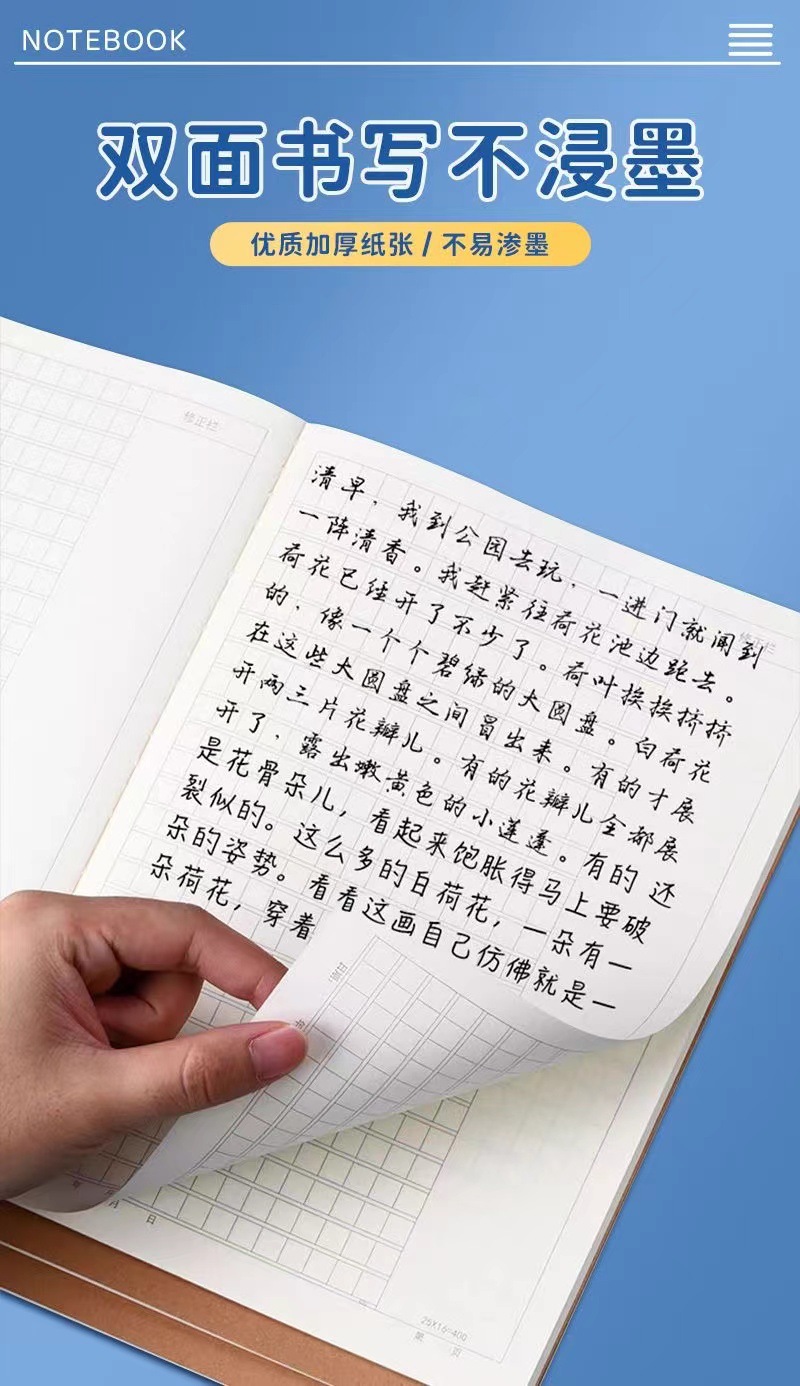 NOTEBOOK
双面书写不浸墨
优质加厚纸张 / 不易渗墨
修正栏
修正栏
清早，我到公园去玩，一进门就闻到
一阵清香。我赶紧往荷花池边跑去。
荷花已经开了不少了。荷叶挨挨挤挤
的，像一个个碧绿的大圆盘。白荷花
在这些大圆盘之间冒出来。有的才展
开两三片花瓣儿。有的花瓣儿全都展
开了，露出嫩黄色的小莲蓬。有的还
是花骨朵儿，看起来饱胀得马上要破
裂似的。这么多的白荷花，一朵有一
朵的姿势。看看这画自己仿佛就是一
朵荷花，穿着
年 月 日
25X16=400
第 页